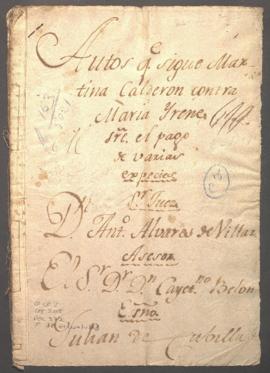 Autos q.e sigue Mar-
tina Calderon contra
Maria Yrene
sre. el pago
de varias
especies
Sr. Juez
Dn. Anto. Alvares de Villar
Asesor
El Sr. Dr. Dn. Cayet.no Belon
Esno.
Julian de Cubillas